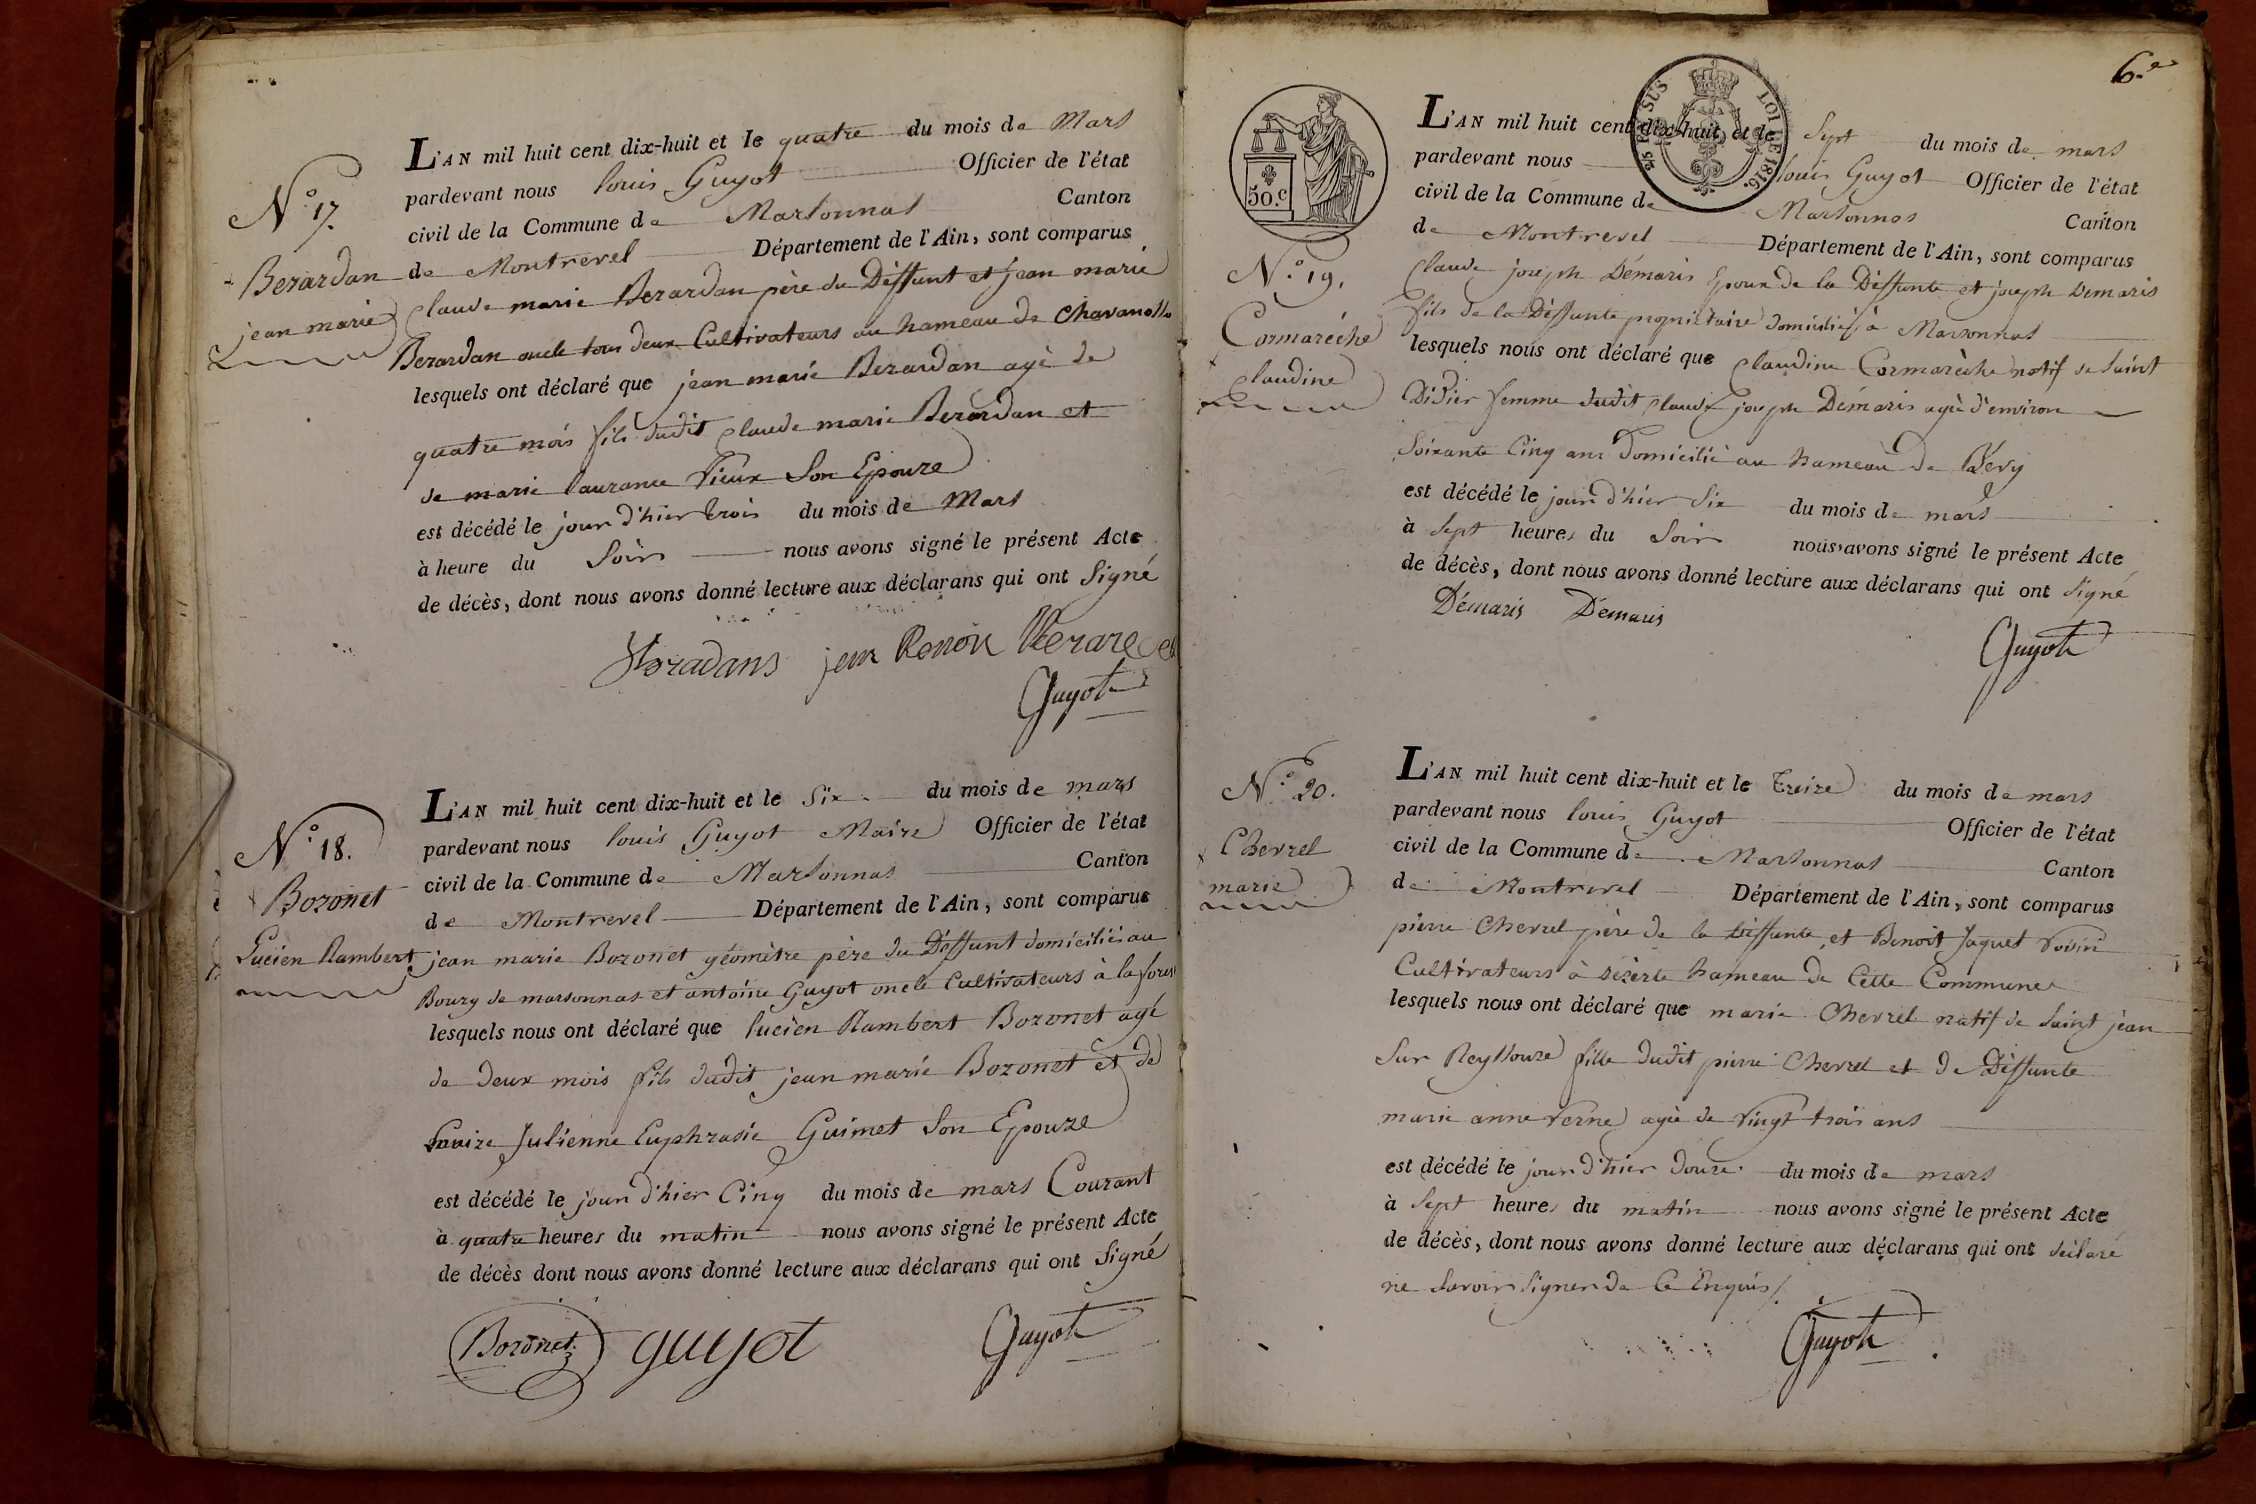 N.° 17.
Berardan
jean marie
L'AN mil huit cent dix-huit et le quatre du mois de Mars
pardevant nous louis Guyot Officier de l'état
civil de la Commune de Marsonnas Canton
de Montrevel Département de l'Ain, sont comparus
claude marie Berardan père du Deffunt et jean marie
Berardan oncle tous deux Cultivateurs au hameau de Chavanolle
lesquels ont déclaré que jean marie Berardan agé de
quatre mois fils dudit claude marie Berardan et
de marie laurance Vieux Son Epouze
est décédé le jour d'hier trois du mois de Mars
à heure du Soir nous avons signé le présent Acte
de décès, dont nous avons donné lecture aux déclarans qui ont Signé
jean Benoit
Guyot
N.° 18.
Bozonet
Lucien Rambert
L'AN mil huit cent dix-huit et le Six du mois de mars
pardevant nous louis Guyot Maire Officier de l'état
civil de la Commune de Marsonnas Canton
de Montrevel Département de l'Ain, sont comparus
jean marie Bozonet géomètre père du Deffunt domiciliés au
Bourg de marsonnas et antoine Guyot oncle Cultivateurs à la forest
lesquels nous ont déclaré que lucien Rambert Bozonet agé
de deux mois fils dudit jean marie Bozonet et de
Louize Julienne Euphrasie Guimet Son Epouze
est décédé le jour d'hier Cinq du mois de mars Courant
à quatre heures du matin nous avons signé le présent Acte
de décès dont nous avons donné lecture aux déclarans qui ont Signé
Bozonet guyot Guyot
6.e
50.c
LOI DE 1816.
N.° 19.
Cormarèche
claudine
L'AN mil huit cent dix-huit et le Sept du mois de mars
pardevant nous louis Guyot Officier de l'état
civil de la Commune de Marsonnas Canton
de Montrevel Département de l'Ain, sont comparus
claude joseph Démaris Epoux de la Deffunte et joseph Demaris
fils de la Deffunte propriétaire domiciliés à Marsonnas
lesquels nous ont déclaré que claudine Cormarèche natif de Saint
Didier femme dudit claude joseph Démaris agée d'environ
Soixante Cinq ans domicilié au hameau de Bévy
est décédé le jour d'hier Six du mois de mars
à Sept heures du Soir nous avons signé le présent Acte
de décès, dont nous avons donné lecture aux déclarans qui ont Signé
Démaris Demaris
Guyot
N.° 20.
Chevrel
marie
L'AN mil huit cent dix-huit et le Treize du mois de mars
pardevant nous louis Guyot Officier de l'état
civil de la Commune de Marsonnas Canton
de Montrevel Département de l'Ain, sont comparus
pierre Chevrel père de la Deffunte, et Benoit Jaquet voisin
Cultivateurs à dézerte hameau de Cette Commune
lesquels nous ont déclaré que marie Chevrel natif de Saint jean
Sur Reyssouze fille dudit pierre Chevrel et de Deffunte
marie anne Verne agée de Vingt trois ans
est décédé le jour d'hier douze du mois de mars
à Sept heures du matin nous avons signé le présent Acte
de décès, dont nous avons donné lecture aux déclarans qui ont déclaré
ne Savoir Signer de Ce Enquis
Guyot